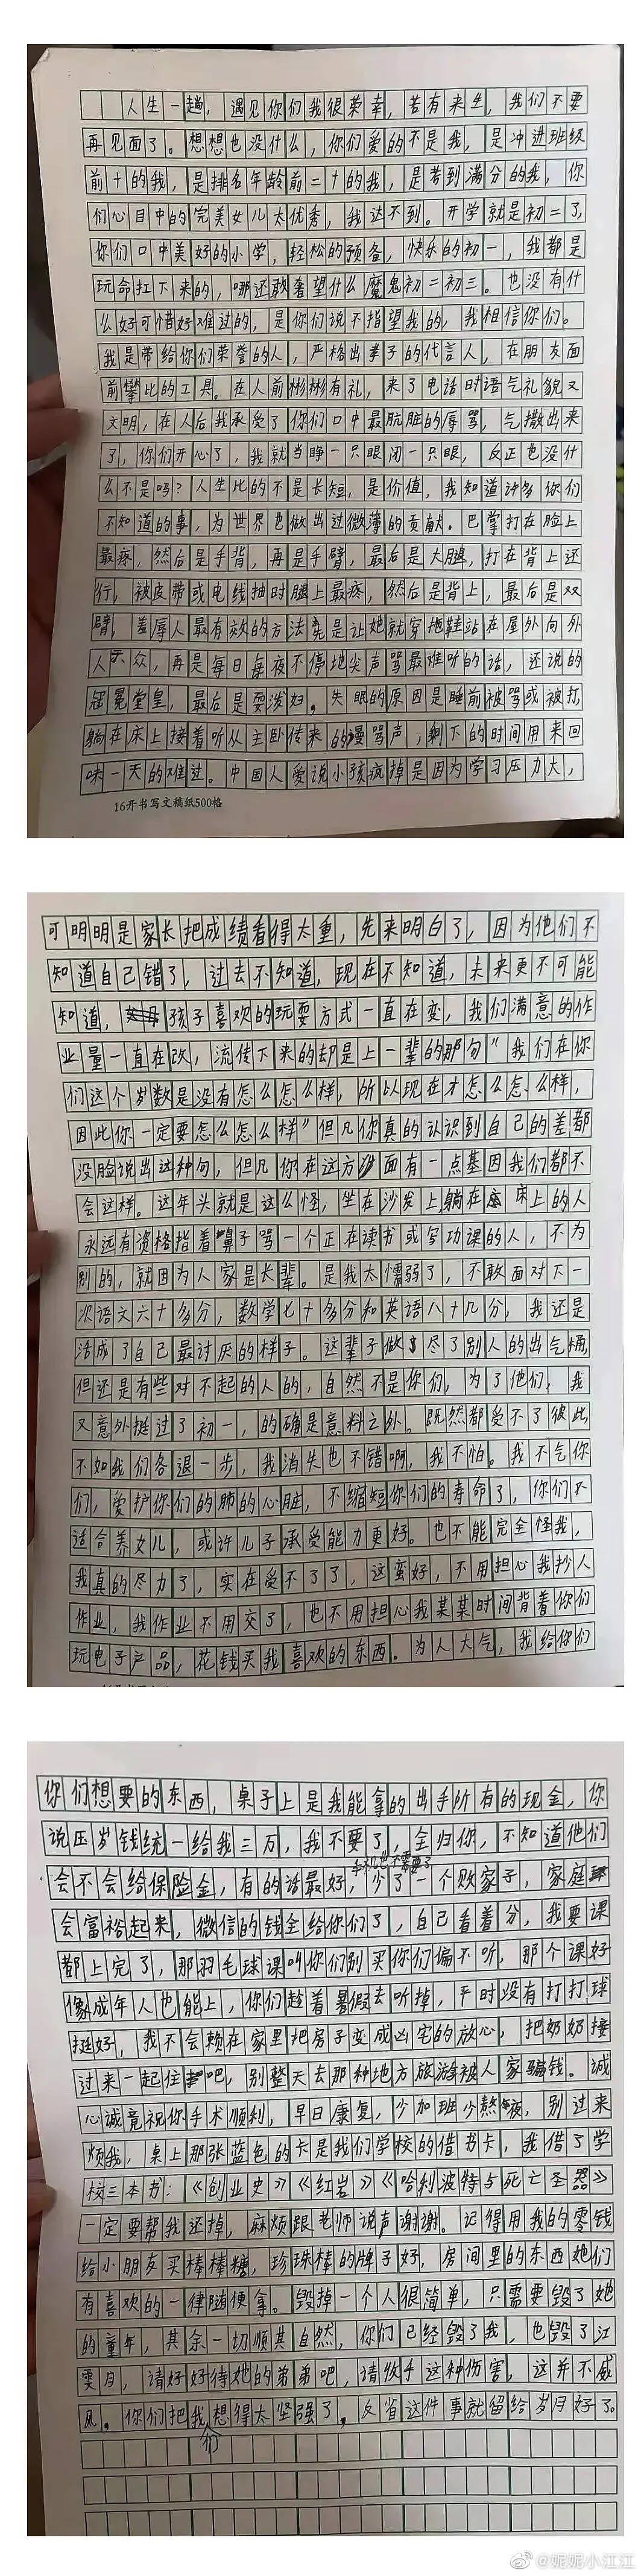 人生一趟，遇见你们我很荣幸，若有来生，我们不要
再见面了。想想也没什么，你们爱的不是我，是冲进班级
前十的我，是排名年龄前二十的我，是考到满分的我，你
们心目中的完美女儿太优秀，我达不到。开学就是初二了，
你们口中美好的小学，轻松的预备，快乐的初一，我都是
玩命扛下来的，哪还敢奢望什么魔鬼初二初三。也没有什
么好可惜好难过的，是你们说不指望我的，我相信你们。
我是带给你们荣誉的人，严格出孝子的代言人，在朋友面
前攀比的工具。在人前彬彬有礼，来了电话时语气礼貌又
文明，在人后我承受了你们口中最肮脏的辱骂，气撒出来
了，你们开心了，我就当睁一只眼闭一只眼，反正也没什
么不是吗？人生比的不是长短，是价值，我知道许多你们
不知道的事，为世界也做出过微薄的贡献。巴掌打在脸上
最疼，然后是手背，再是手臂，最后是大腿，打在背上还
行，被皮带或电线抽时腿上最疼，然后是背上，最后是双
臂，羞辱人最有效的方法是让她就穿拖鞋站在屋外向外
人示众，再是每日每夜不停地尖声骂最难听的话，还说的
冠冕堂皇，最后是耍泼妇。失眠的原因是睡前被骂或被打，
躺在床上接着听从主卧传来的谩骂声，剩下的时间用来回
味一天的难过。中国人爱说小孩疯掉是因为学习压力大，
16开书写文稿纸500格
可明明是家长把成绩看得太重，先来明白了，因为他们不
知道自己错了，过去不知道，现在不知道，未来更不可能
知道，孩子喜欢的玩耍方式一直在变，我们满意的作
业量一直在改，流传下来的却是上一辈的那句"我们在你
们这个岁数是没有怎么怎么样，所以现在才怎么怎么样，
因此你一定要怎么怎么样"但凡你真的认识到自己的差都
没脸说出这种句，但凡你在这方面有一点基因我们都不
会这样。这年头就是这么怪，坐在沙发上躺在床上的人
永远有资格指着鼻子骂一个正在读书或写功课的人，不为
别的，就因为人家是长辈。是我太懦弱了，不敢面对下一
次语文六十多分，数学七十多分和英语八十几分，我还是
活成了自己最讨厌的样子。这辈子做尽了别人的出气桶，
但还是有些对不起的人的，自然不是你们，为了他们，我
又意外挺过了初一，的确是意料之外。既然都受不了彼此，
不如我们各退一步，我消失也不错啊，我不怕。我不气你
们，爱护你们的肺的心脏，不缩短你们的寿命了，你们不
适合养女儿，或许儿子承受能力更好。也不能完全怪我，
我真的尽力了，实在受不了了，这蛮好，不用担心我抄人
作业，我作业不用交了，也不用担心我某某时间背着你们
玩电子产品，花钱买我喜欢的东西。为人大气，我给你们
你们想要的东西，桌子上是我能拿的出手所有的现金，你
说压岁钱统一给我三万，我不要了，全归你，不知道他们
手机也不需要了
会不会给保险金，有的话最好，少了一个败家子，家庭
会富裕起来，微信的钱全给你们了，自己看着分，我要课
都上完了，那羽毛球课叫你们别买你们偏不听，那个课好
像成年人也能上，你们趁着暑假去听掉，平时没有打打球
挺好，我不会赖在家里把房子变成凶宅的放心，把奶奶接
过来一起住吧，别整天去那种地方旅游被人家骗钱。诚
心诚意祝你手术顺利，早日康复，少加班少熬夜，别过来
烦我，桌上那张蓝色的卡是我们学校的借书卡，我借了学
校三本书：《创业史》《红岩》《哈利波特与死亡圣器》
一定要帮我还掉，麻烦跟老师说声谢谢。记得用我的零钱
给小朋友买棒棒糖，珍珠棒的牌子好，房间里的东西她们
有喜欢的一律随便拿。毁掉一个人很简单，只需要毁了她
的童年，其余一切顺其自然，你们已经毁了我，也毁了江
雯月，请好好待她的弟弟吧，请收手这种伤害，这并不威
风。你们把我们想得太坚强了，反省这件事就留给岁月好了。
@妮妮小江江